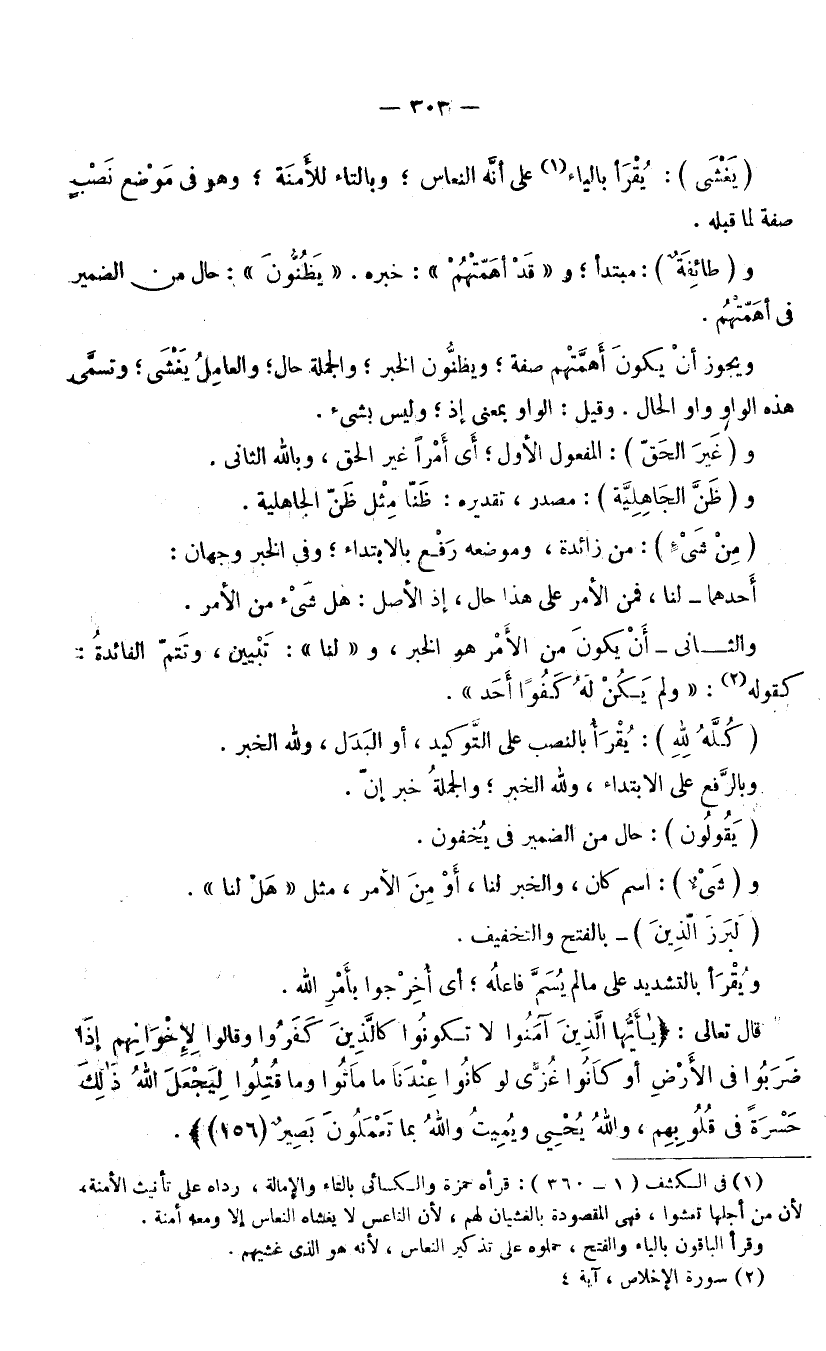 — ٣٠٣ —
( يَغْشَى ) : يُقْرَأ بالياء(١) على أنَّه النعاس ؛ وبالتاء للأَمنَة ؛ وهو فى مَوْضع نَصْبٍ
صفة لما قبله .
و ( طائِفَةٌ ) : مبتدأ ؛ و « قَدْ أَهَمَّتْهُمْ » : خبره . « يَظُنُّونَ » : حال من الضمير
فى أهَمَّتْهُم .
ويجوز أنْ يكونَ أَهَمَّتْهم صفة ؛ ويظنُّون الخبر ؛ والجملة حال؛ والعامِلُ يَغْشَى ؛ وتسمَّى
هذه الواو واو الحال . وقيل : الواو بمعنى إذ ؛ وليس بشىء .
و ( غَيرَ الحَقّ ) : المفعول الأول ؛ أى أَمْراً غير الحق ، وبالله الثانى .
و ( ظَنَّ الجَاهِلِيَّة ) : مصدر ، تقديره : ظَنًّا مِثْل ظَنّ الجاهلية .
( مِنْ شَىْءٍ ) : من زائدة ، وموضعه رَفْع بالابتداء ؛ وفى الخبر وجهان :
أَحدهما ـ لنا ، فمن الأمر على هذا حال ، إذ الأصل : هل شَىْء من الأمر .
والثـــانى ـ أَنْ يكونَ من الأَمْر هو الخبر ، و « لنا » : تَبْيين ، وتَتمّ الفائدةُ :
كقوله(٢) : « ولم يَـكُنْ لَهُ كُفُوًا أَحَد » .
( كُـلَّهُ لِلهِ ) : يُقْرَأ بالنصب على التَّوكيد ، أو البَدَل ، ولله الخبر .
وبالرَّفع على الابتداء ، ولله الخبر ؛ والجملةُ خبر إنّ .
( يَقُولُون ) : حال من الضمير فى يُخفون .
و ( شَىْءٌ ) : اسم كان ، والخبر لنا ، أَوْ مِنَ الأمر ، مثل « هَلْ لنا » .
( لَبَرزَ الّذِينَ ) ـ بالفتح والتخفيف .
ويُقْرَأ بالتشديد على مالم يُسَمَّ فاعلُه ؛ أى أُخرِجوا بأَمْرِ الله .
قال تعالى : ﴿ يٰأَيُّها الَّذِينَ آمَنُوا لا تـكونُوا كالَّذِينَ كَفَرُوا وقالوا لِإِخْوَانِهم إذَا
ضَرَبُوا فى الأَرْضِ أو كَانُوا غُزًّى لو كانُوا عِنْدَنَا ما مَاتُوا وما قُتِلُوا لِيَجْعَلَ اللهُ ذٰلِكَ
حَسْرَةً فى قُلُوبِهِم ، واللهُ يُحْيِي ويُمِيتُ واللهُ بما تَعْمَلُونَ بَصِيرٌ (١٥٦) ﴾ .
(١) فى الـكشف ( ١ - ٣٦٠ ) : قرأه حمزة والـكسائى بالتاء والإمالة ، رداه على تأنيث الأمنة،
لأن من أجلها نعسوا ، فهى المقصودة بالغشيان لهم ، لأن الناعس لا يغشاه النعاس إلا ومعه أمنة .
وقرأ الباقون بالياء والفتح ، حملوه على تذكير النعاس ، لأنه هو الذى غشيهم .
(٢) سورة الإخلاص ، آية ٤